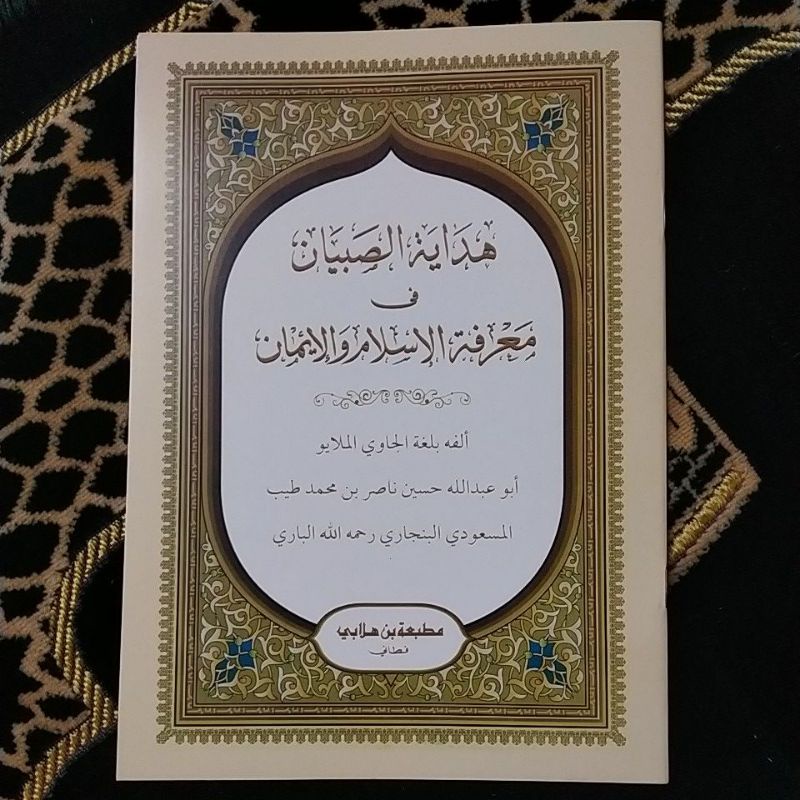 هداية الصبيان
فى
مَعْرفة الإسلام والإيمان
ألفه بلغة الجاوي الملايو
أبو عبدالله حسين ناصر بن محمد طيب
المسعودي البنجاري رحمه الله الباري
مطبعة بن هلابي
فطاني